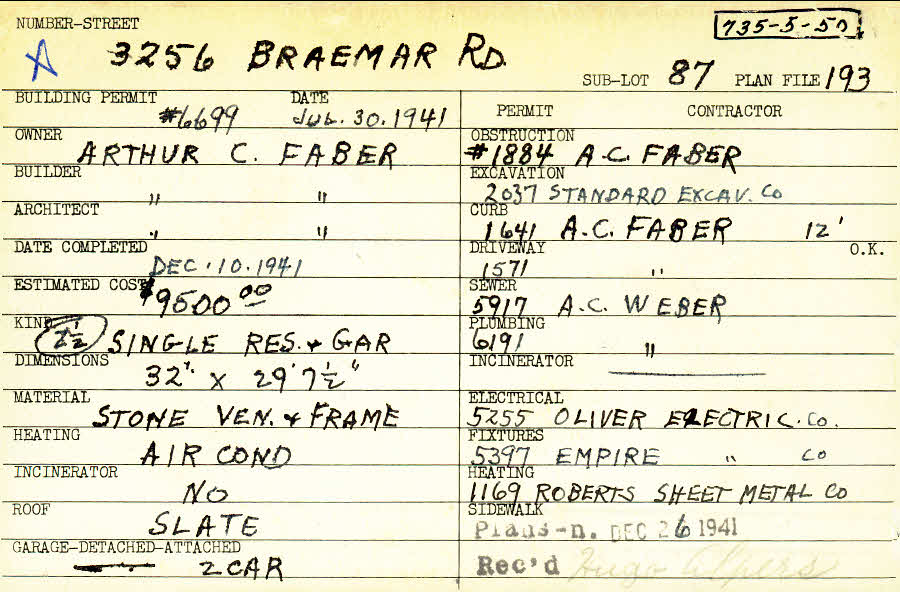 NUMBER-STREET
735-5-50
A 3256 BRAEMAR RD.
SUB-LOT 87 PLAN FILE 193
BUILDING PERMIT DATE
#6699 JUL. 30. 1941
OWNER
ARTHUR C. FABER
BUILDER
" "
ARCHITECT
" "
DATE COMPLETED
DEC. 10. 1941
ESTIMATED COST
$9500.00
KIND
2½ SINGLE RES. & GAR
DIMENSIONS
32" x 29'7½"
MATERIAL
STONE VEN. & FRAME
HEATING
AIR COND
INCINERATOR
NO
ROOF
SLATE
GARAGE-DETACHED-ATTACHED
2 CAR
PERMIT CONTRACTOR
OBSTRUCTION
#1884 A.C. FABER
EXCAVATION
2037 STANDARD EXCAV. CO
CURB
1641 A.C. FABER 12'
DRIVEWAY O.K.
1571 "
SEWER
5917 A.C. WEBER
PLUMBING
6191 "
INCINERATOR
ELECTRICAL
5255 OLIVER ELECTRIC. Co.
FIXTURES
5397 EMPIRE " CO
HEATING
1169 ROBERTS SHEET METAL CO
SIDEWALK
Plans-n. DEC 26 1941
Rec'd Hugo Alpers